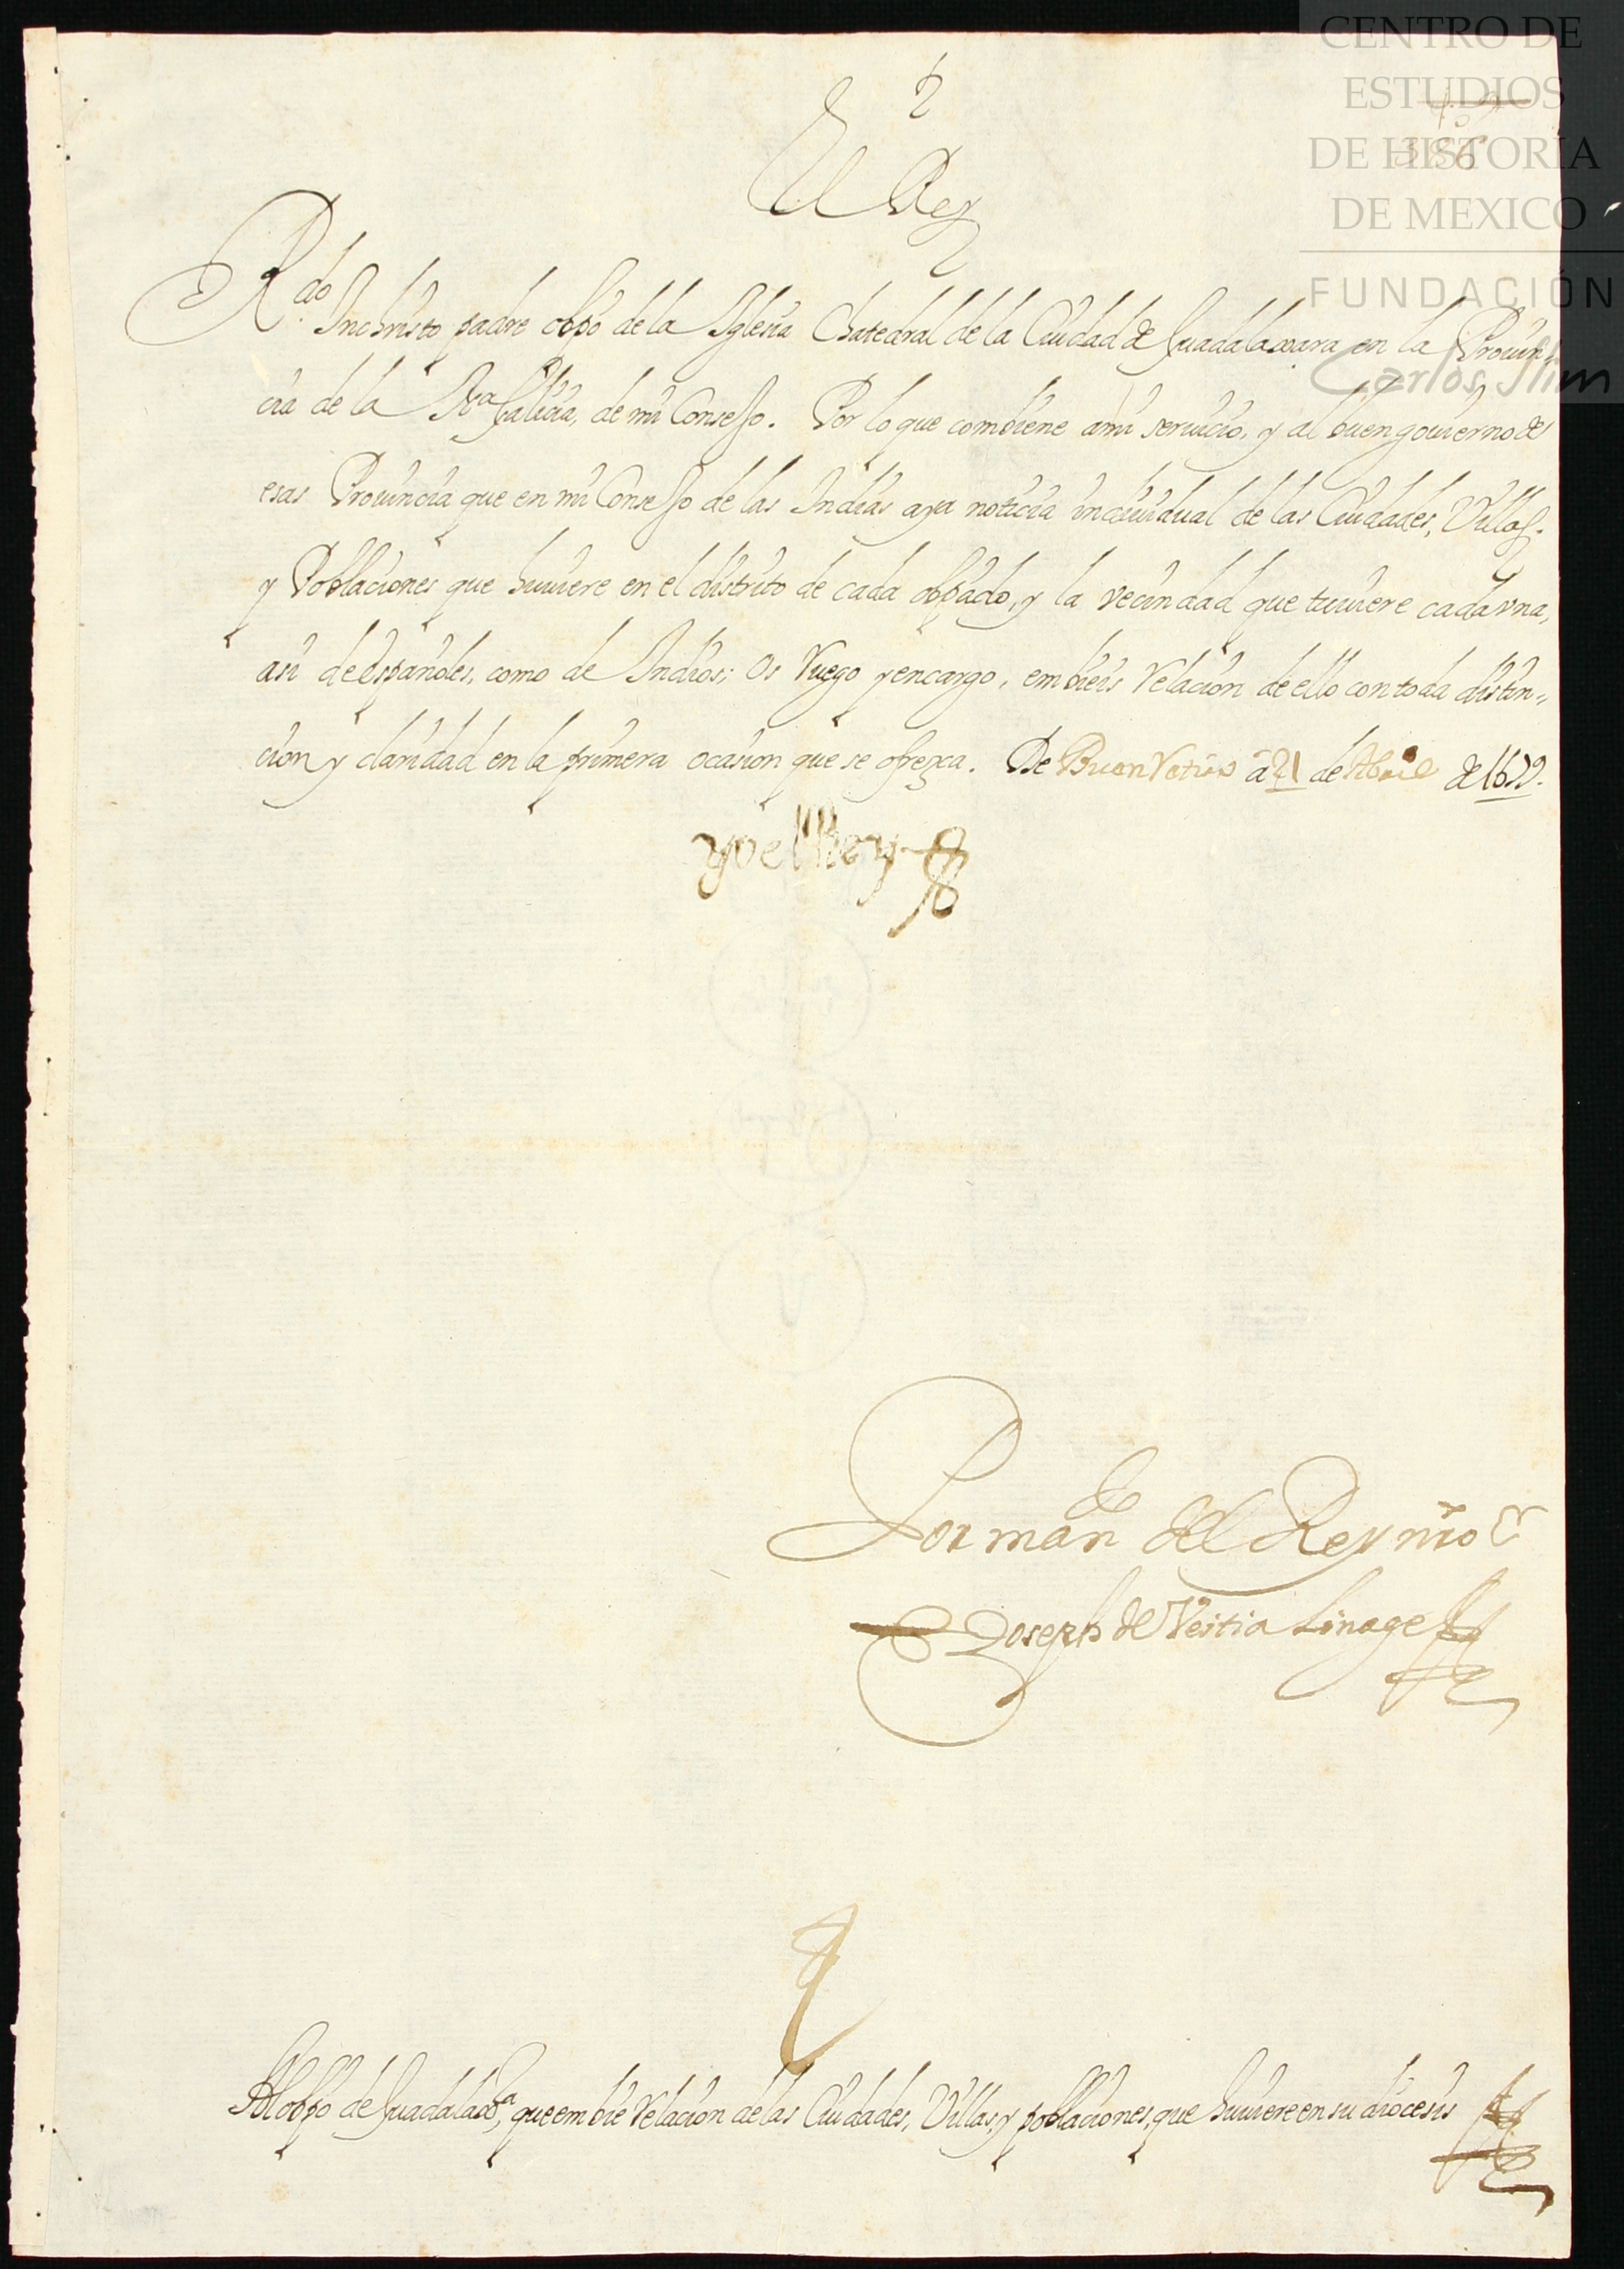 CENTRO DE
ESTUDIOS
DE HISTORIA
DE MEXICO
FUNDACIÓN
Carlos Slim
El Rey
Rdo Inchristo padre obpo de la Iglesia Chatedral de la Ciudad de Guadalaxara en la Prouin=
cia de la Na Galicia, de mi Consejo. Por lo que combiene a mi seruicio, y al buen gouierno de
esas Prouincia que en mi Consejo de las Indias aya noticia indiuidual de las Ciudades, Villas.
y Poblaciones que huuiere en el distrito de cada obpado, y la vecindad que tuuiere cada vna,
asi de Españoles, como de Indios; Os Ruego y encargo, embieis Relacion de ello con toda distin=
cion y claridad en la primera ocasion que se ofrezca. De Buen Retiro a 21 de Abril de 1679.
yo el Rey
Por mando del Rey nro Sr
Joseph de Veitia Linage
Al obpo de Guadalaxra, que embie Relacion de las Ciudades, Villas, y poblaciones, que huuiere en su diocesis